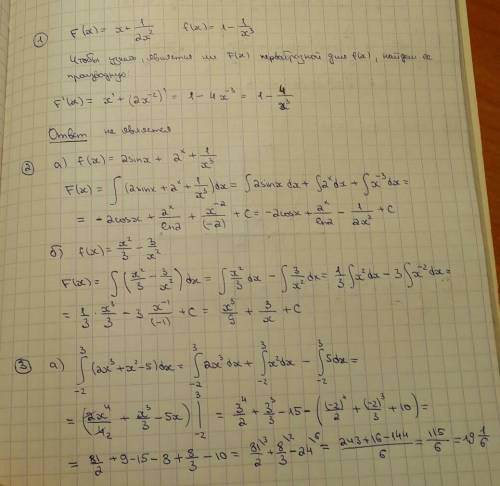 ① F(x) = x + 1/(2x²)   f(x) = 1 - 1/x³
Чтобы узнать, является ли F(x) первообразной для f(x), найдем ее
производную
F'(x) = x' + (2x⁻²)' = 1 - 4x⁻³ = 1 - 4/x³
Ответ не является
② а) f(x) = 2sinx + 2ˣ + 1/x³
F(x) = ∫(2sinx + 2ˣ + 1/x³)dx = ∫2sinx dx + ∫2ˣdx + ∫x⁻³dx =
= -2cosx + 2ˣ/ln2 + x⁻²/(-2) + C = -2cosx + 2ˣ/ln2 - 1/(2x²) + C
б) f(x) = x²/3 - 3/x²
F(x) = ∫(x²/3 - 3/x²)dx = ∫x²/3 dx - ∫3/x² dx = 1/3 ∫x²dx - 3∫x⁻²dx =
= 1/3 · x³/3 - 3 x⁻¹/(-1) + C = x³/9 + 3/x + C
③ а) ∫₋₂³ (2x³ + x² - 5)dx = ∫₋₂³ 2x³dx + ∫₋₂³ x²dx - ∫₋₂³ 5dx =
= (2x⁴/4₂ + x³/3 - 5x) |₋₂³ = 3⁴/2 + 3³/3 - 15 - ((-2)⁴/2 + (-2)³/3 + 10) =
= 81/2 + 9 - 15 - 8 + 8/3 - 10 = 81/2 \³ + 8/3 \² - 24 \⁶ = (243 + 16 - 144)/6 = 115/6 = 19 1/6